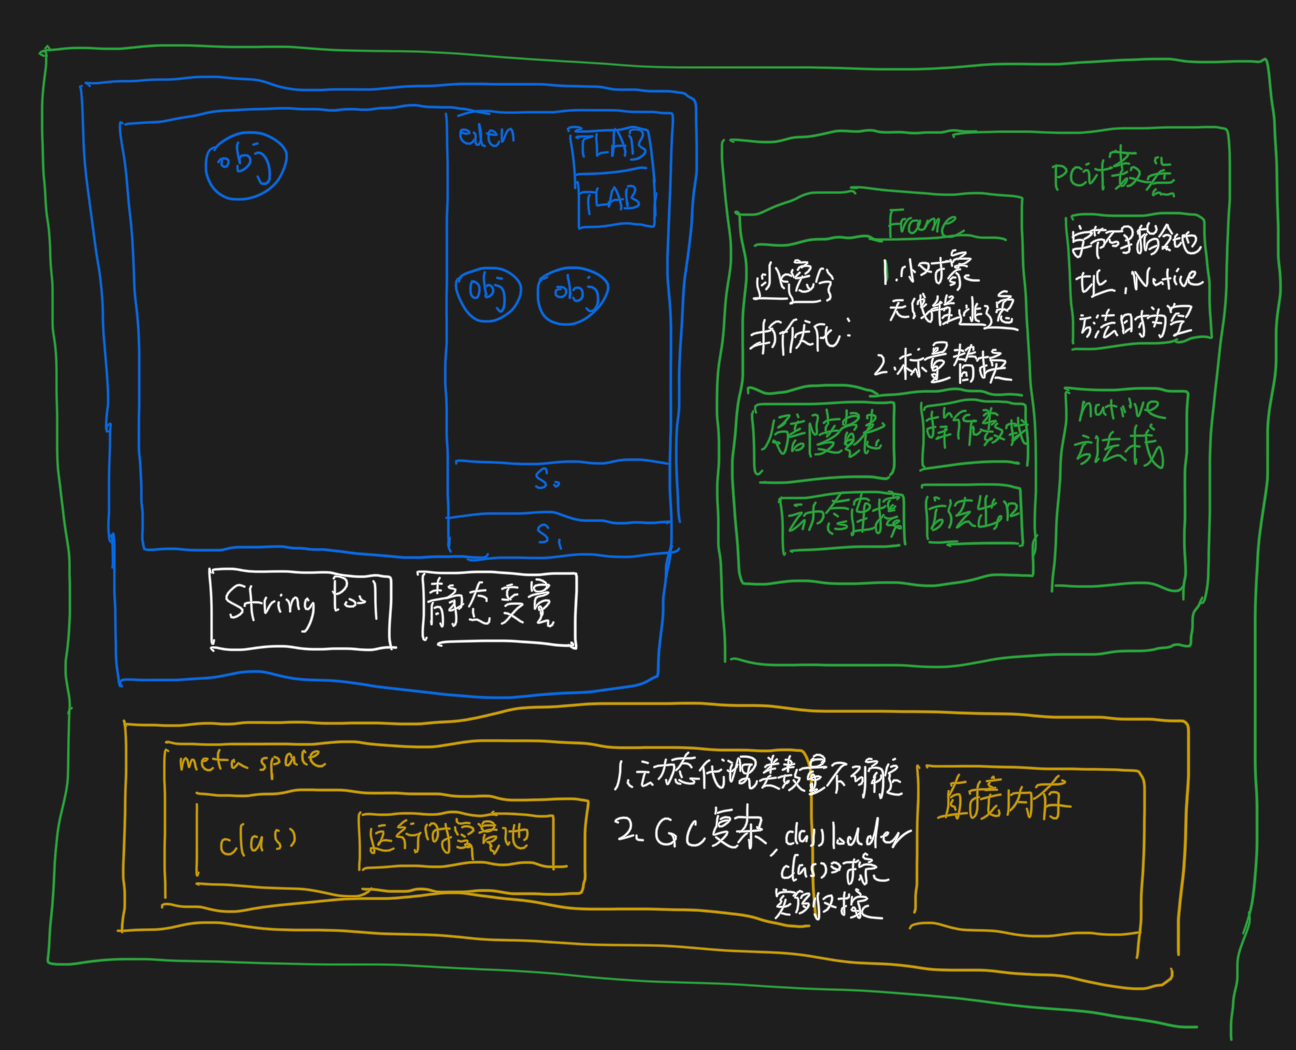 obj
eden
TLAB
TLAB
obj
obj
S₀
S₁
String Pool
静态变量
Frame
逃逸分
析优化:
1.小对象
无线程逃逸
2.标量替换
局部变量表
操作数栈
动态连接
方法出口
PC计数器
字节码指令地
址,Native
方法时为空
native
方法栈
meta space
class
运行时常量池
1.动态代理类数量不确定
2.GC复杂,classloader
class对象
实例对象
直接内存